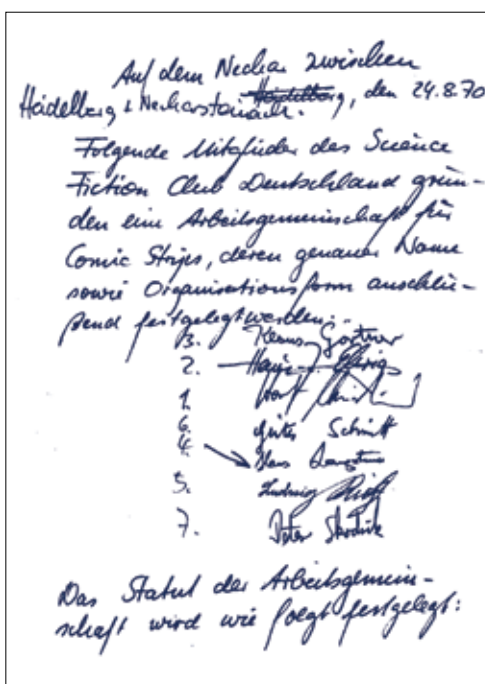 Auf dem Neckar zwischen
Heidelberg & Neckarsteinach. Heidelberg, den 24.8.70
Folgende Mitglieder des Science
Fiction Club Deutschland grün-
den eine Arbeitsgemeinschaft für
Comic Strips, deren genauer Name
sowie Organisationsform anschlie-
ßend festgelegt werden:
3. Klaus Gärtner
2.
1.
6. Schmitt
4. Hans
5. Ludwig
7. Peter
Das Statut der Arbeitsgemein-
schaft wird wie folgt festgelegt: